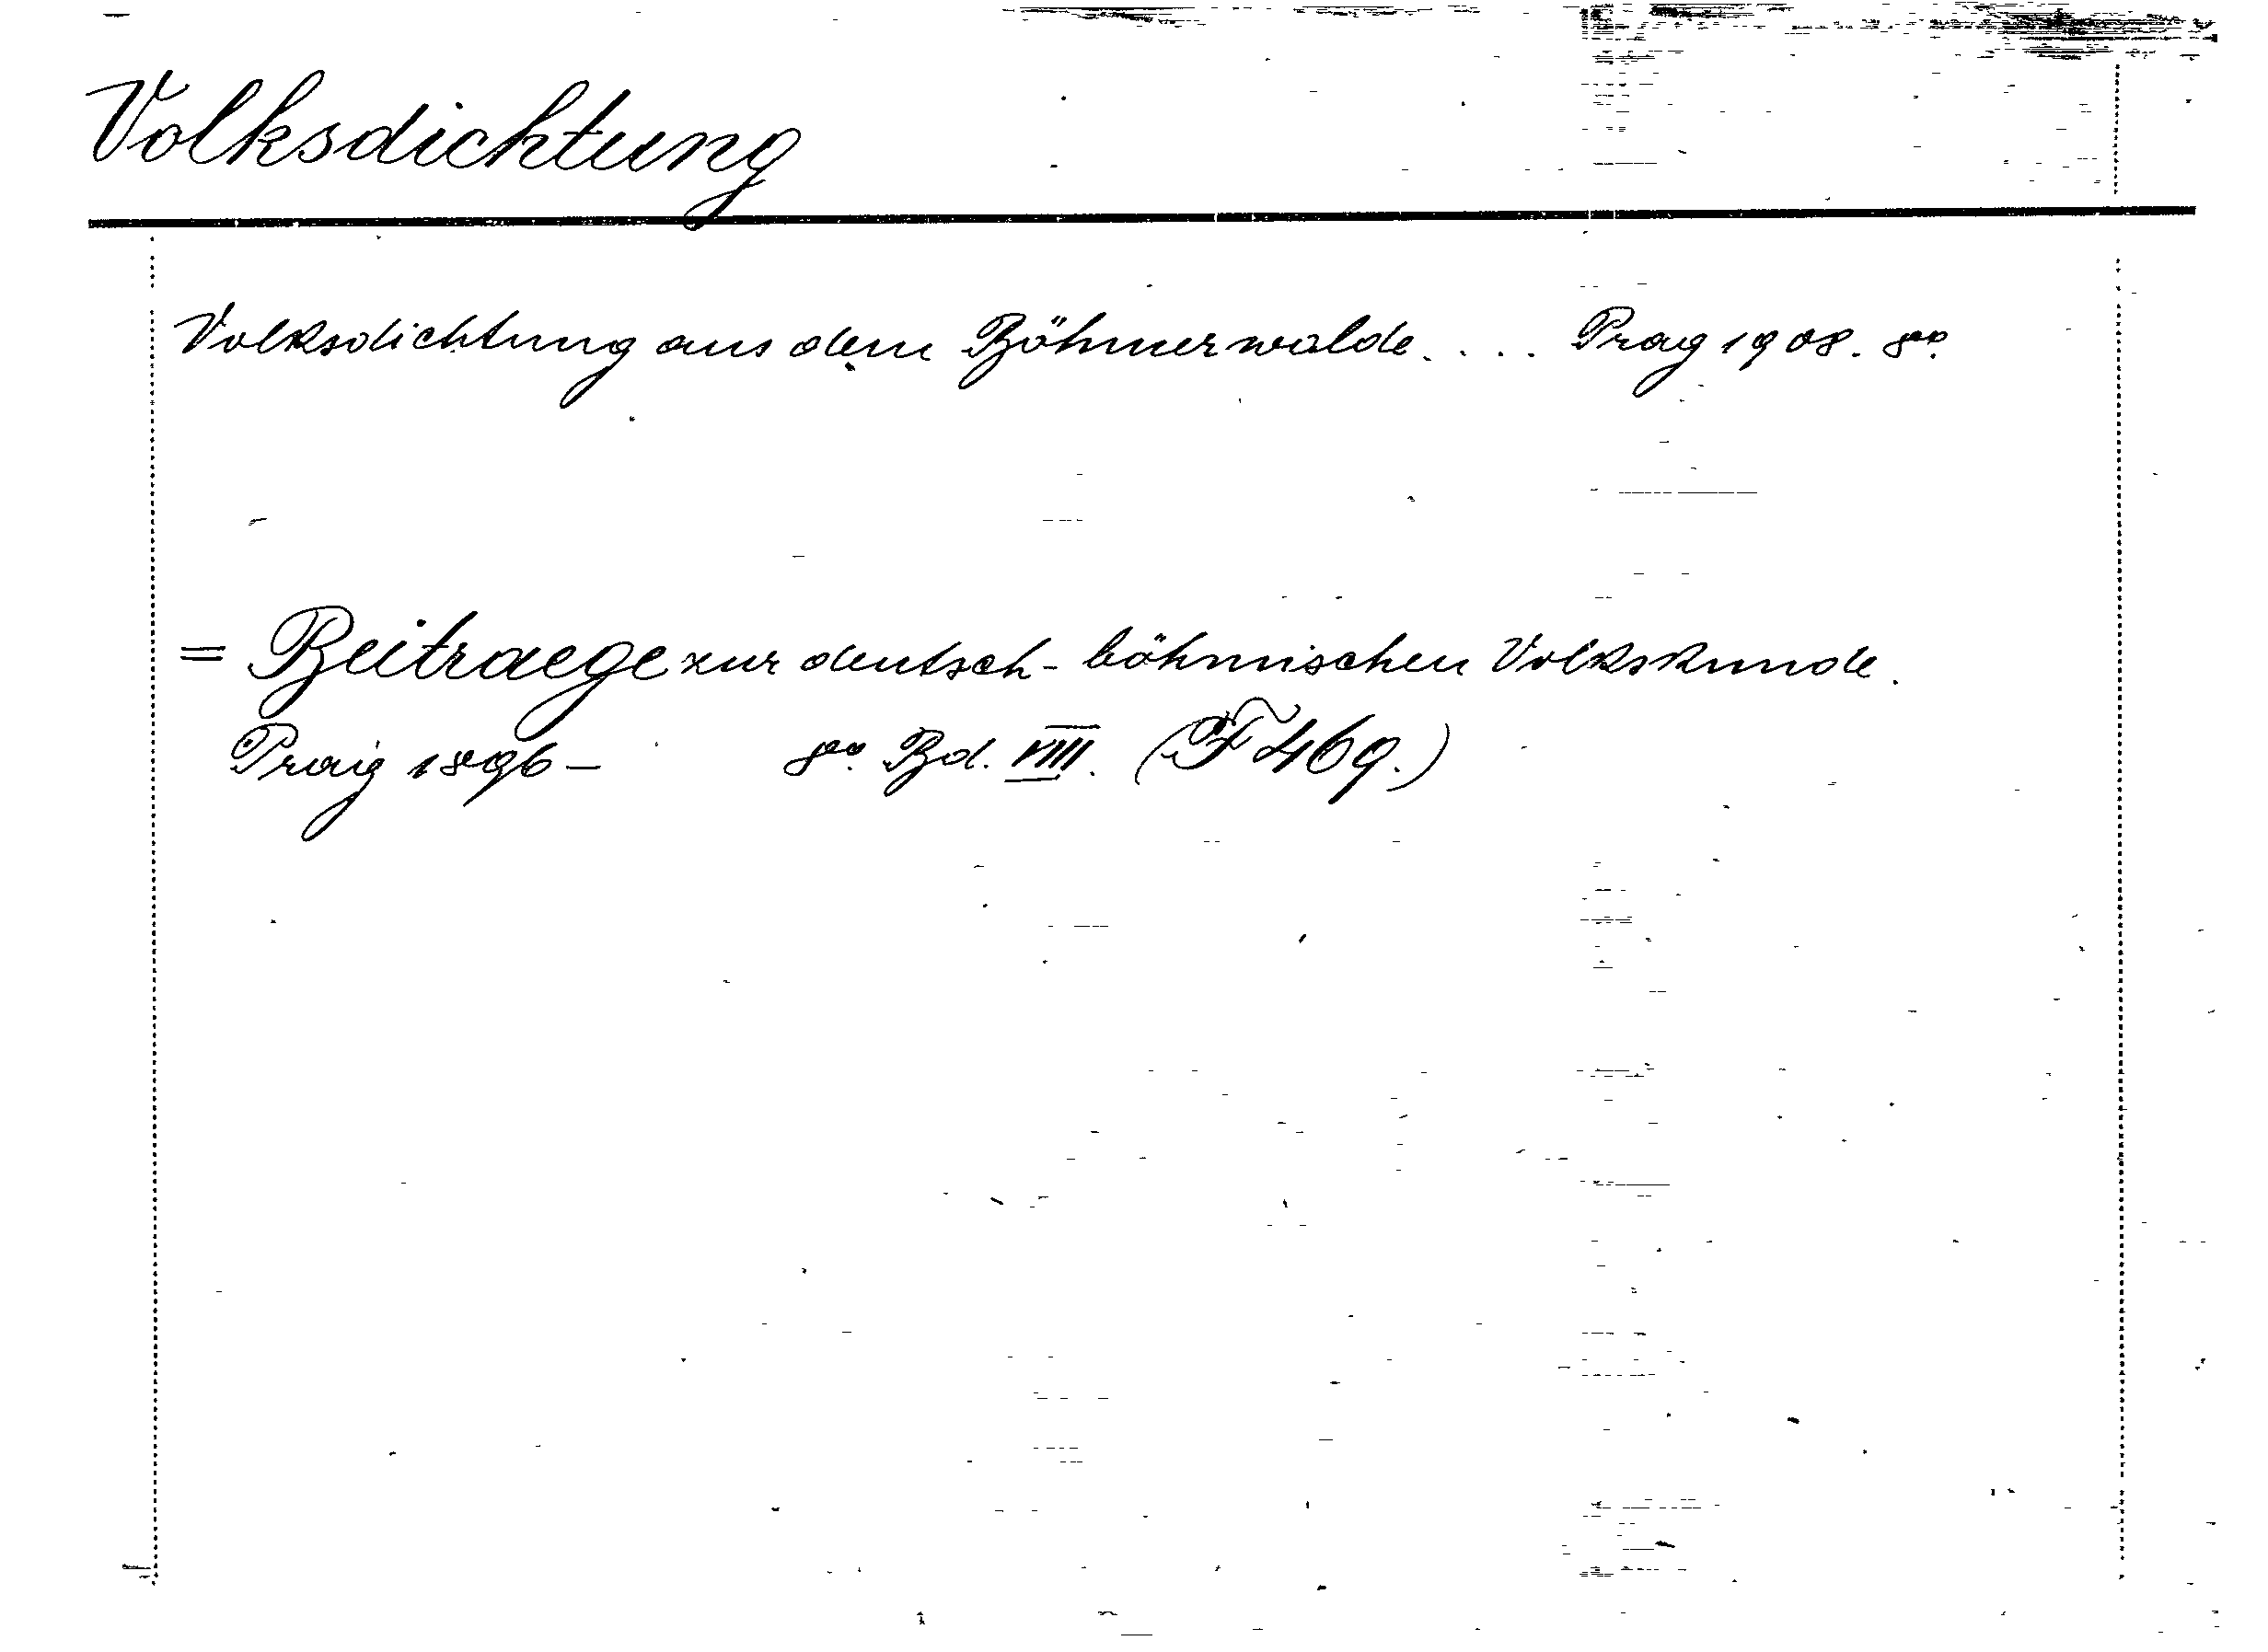 Volksdichtung
Volksdichtung aus dem Böhmerwalde.... Prag 1908. 8o.
= Beitraege zur deutsch-böhmischen Volkskunde.
Prag 1896- 8o. Bd. VIII. (F 469.)